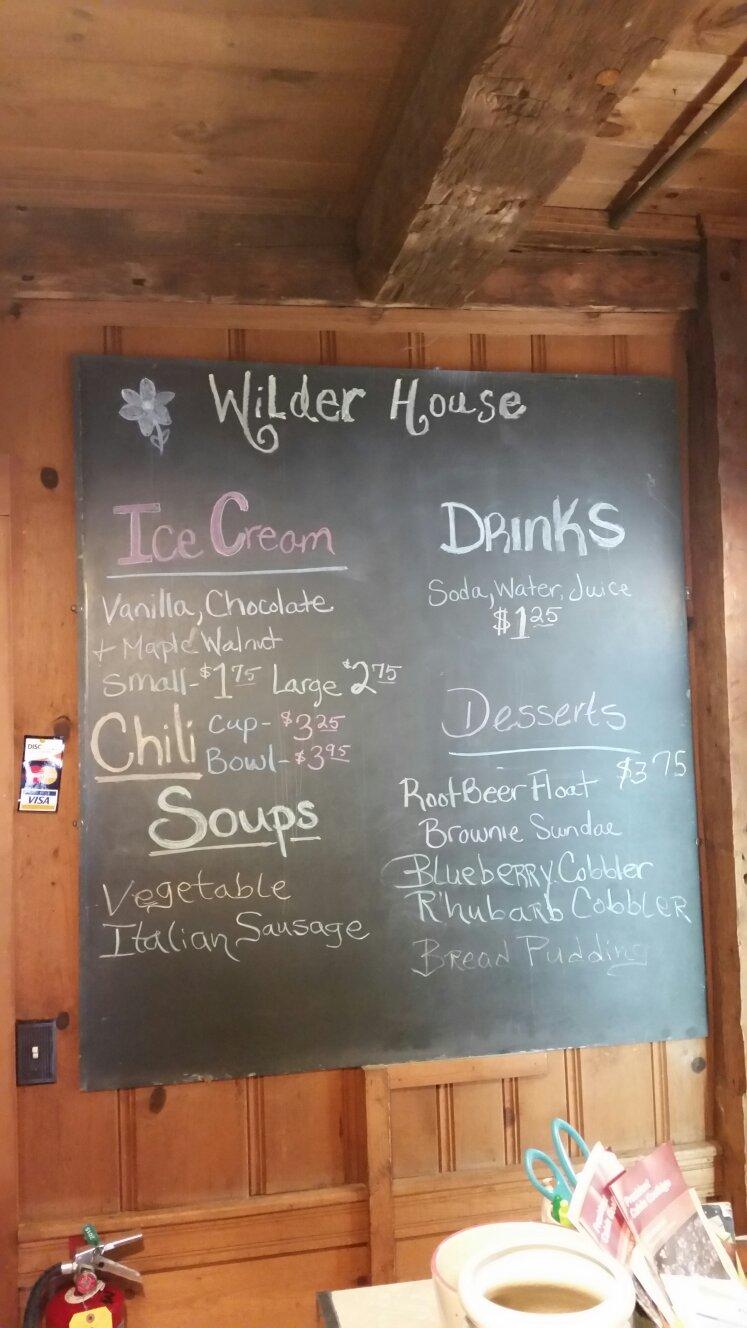 Wilder House
Ice Cream
Vanilla, Chocolate
+ Maple Walnut
Small - $1.75 Large $2.75
Chili Cup - $3.25
Bowl - $3.95
Soups
Vegetable
Italian Sausage
DRINKS
Soda, Water, Juice
$1.25
Desserts
$3.75
Root Beer Float
Brownie Sundae
Blueberry Cobbler
Rhubarb Cobbler
Bread Pudding
DISC
VISA